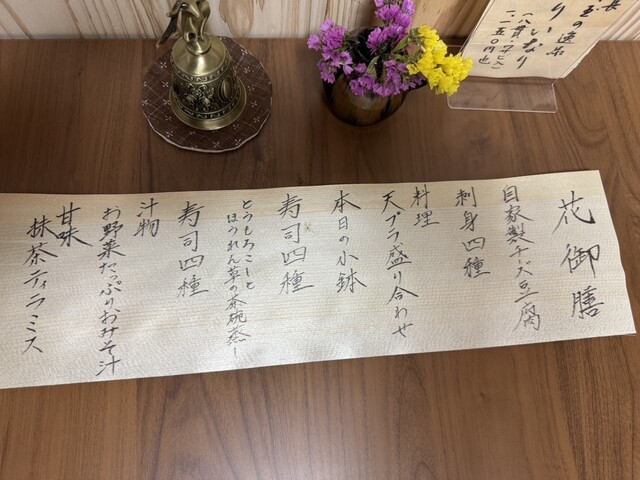 花御膳
自家製チーズ豆腐
刺身四種
料理
天プラ盛り合わせ
本日の小鉢
寿司四種
とうもろこしと
ほうれん草の茶碗蒸し
寿司四種
汁物
お野菜たっぷりおみそ汁
甘味
抹茶ティラミス